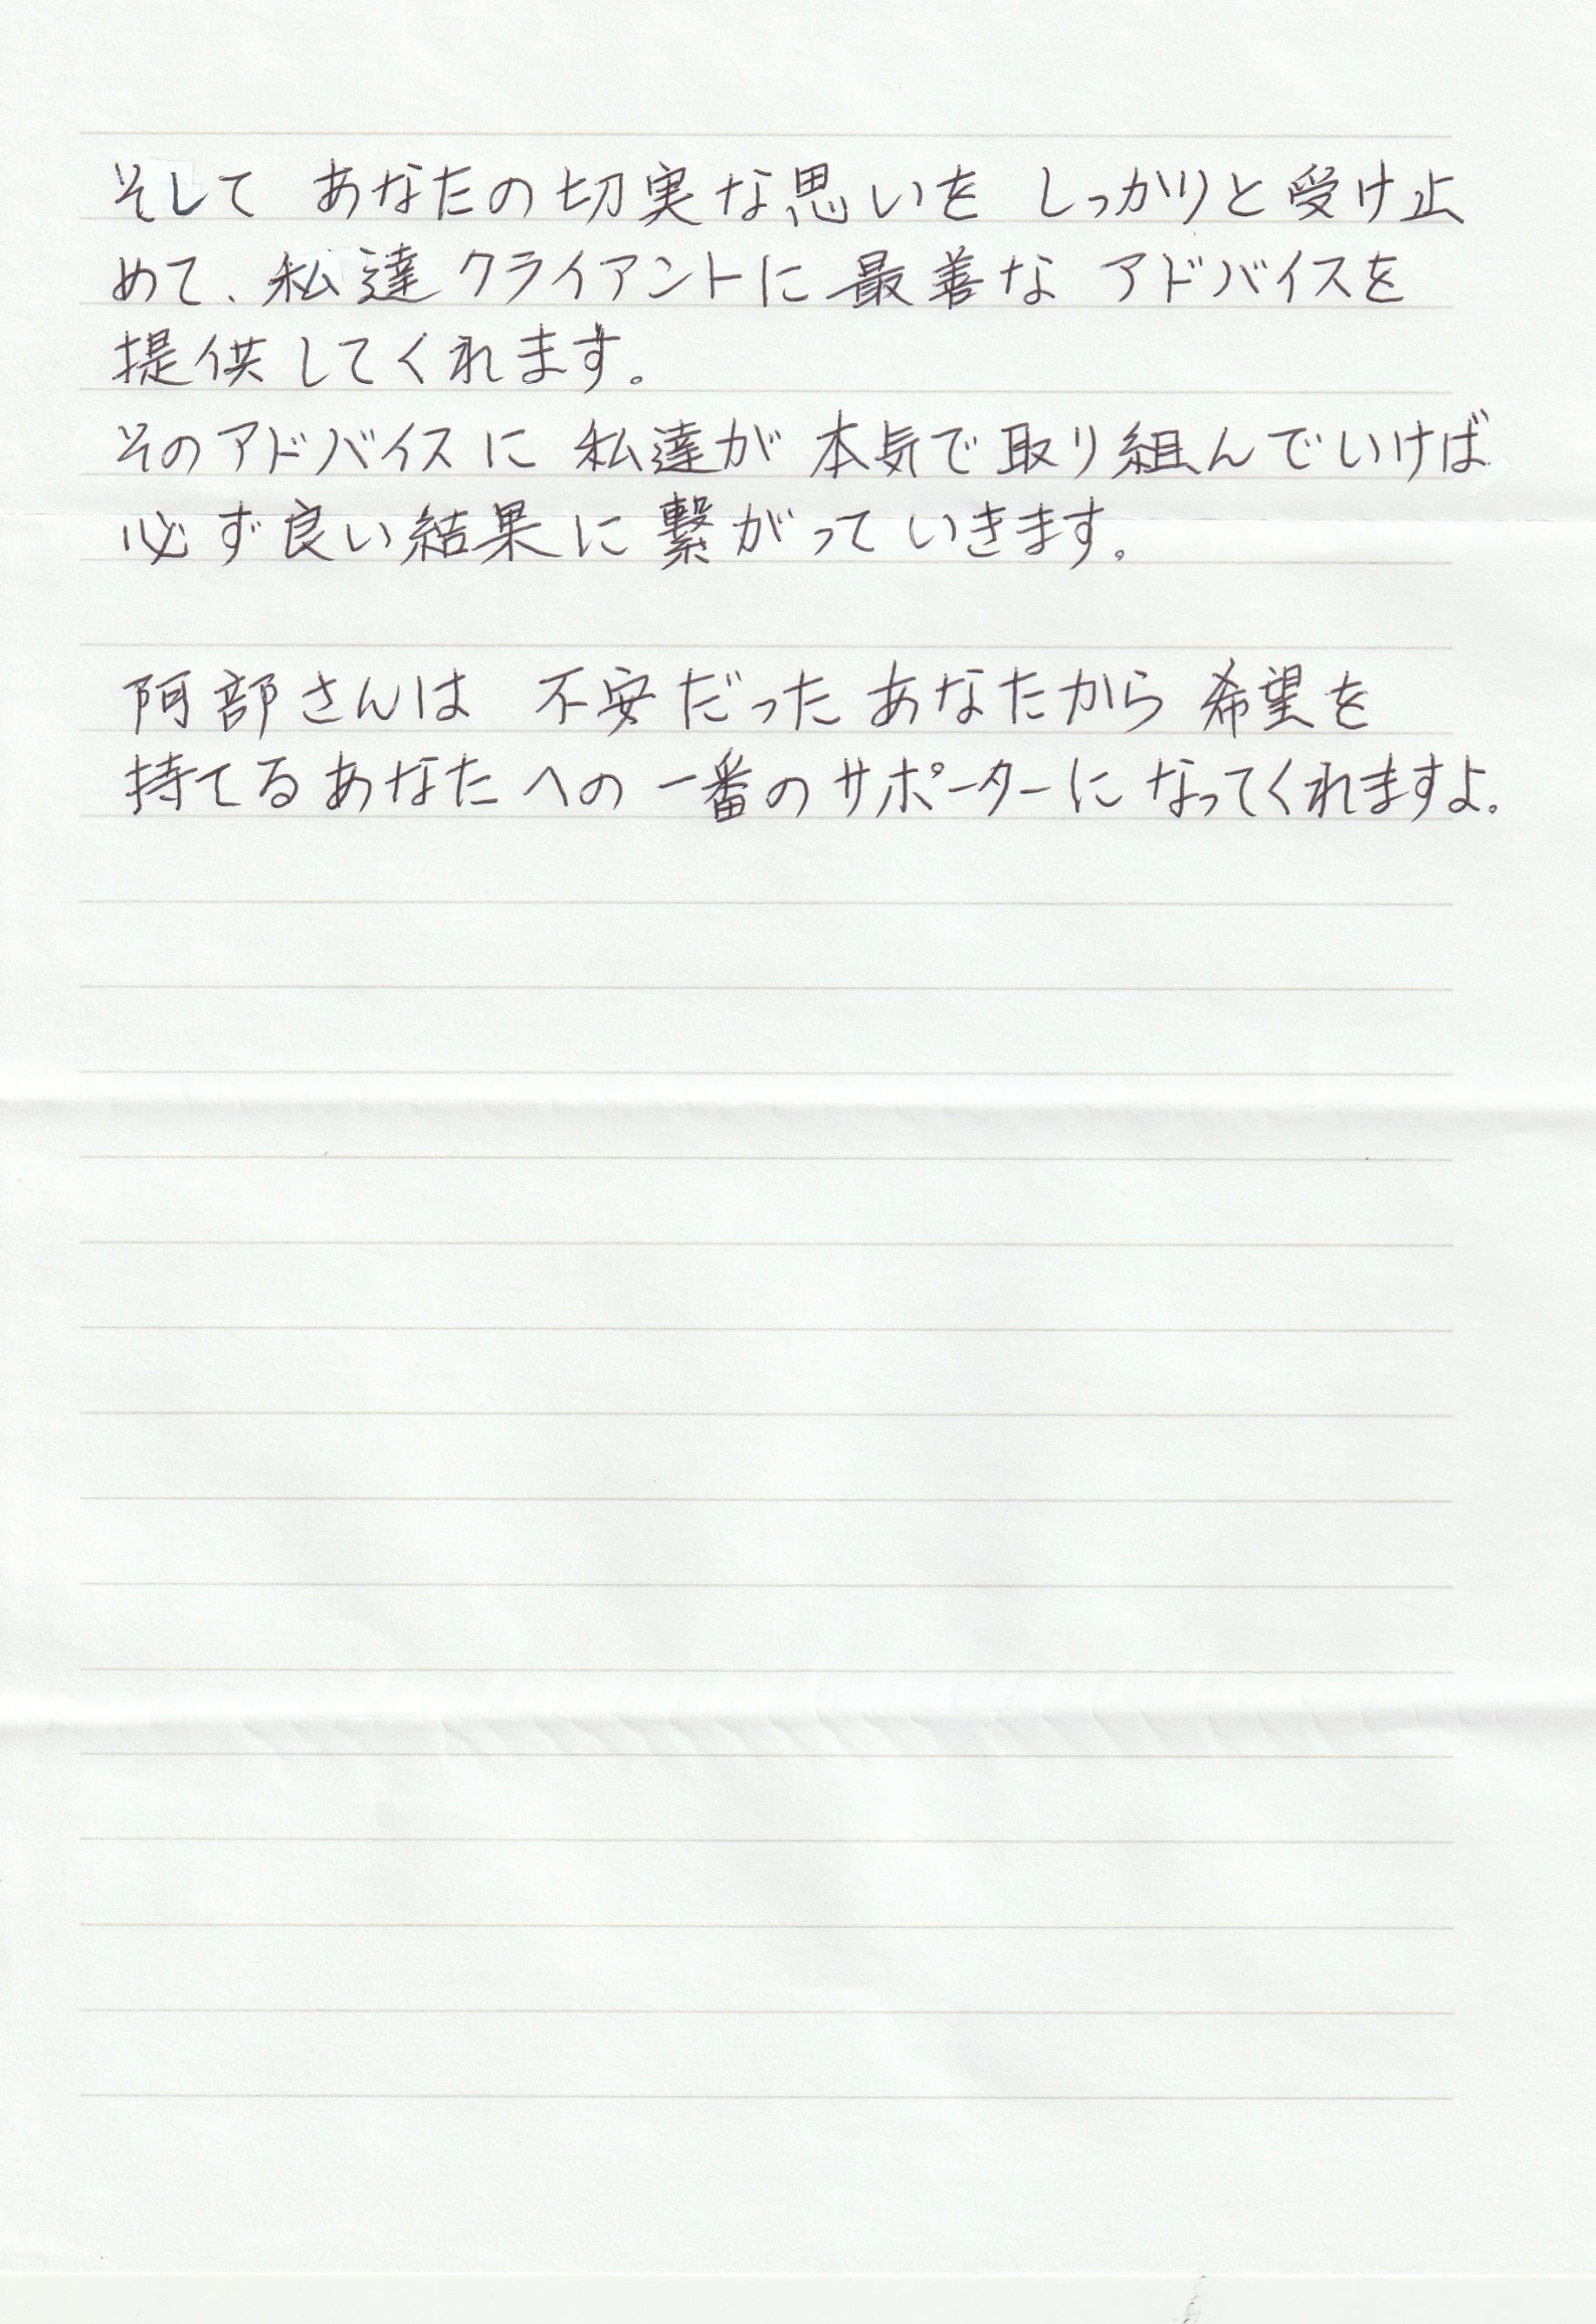 そして あなたの切実な思いを しっかりと受け止
めて、私達 クライアントに 最善な アドバイスを
提供してくれます。
そのアドバイスに 私達が 本気で取り組んでいけば
必ず良い結果に繋がって いきます。
阿部さんは 不安だった あなたから 希望を
持てるあなたへの 一番のサポーターに なってくれますよ。